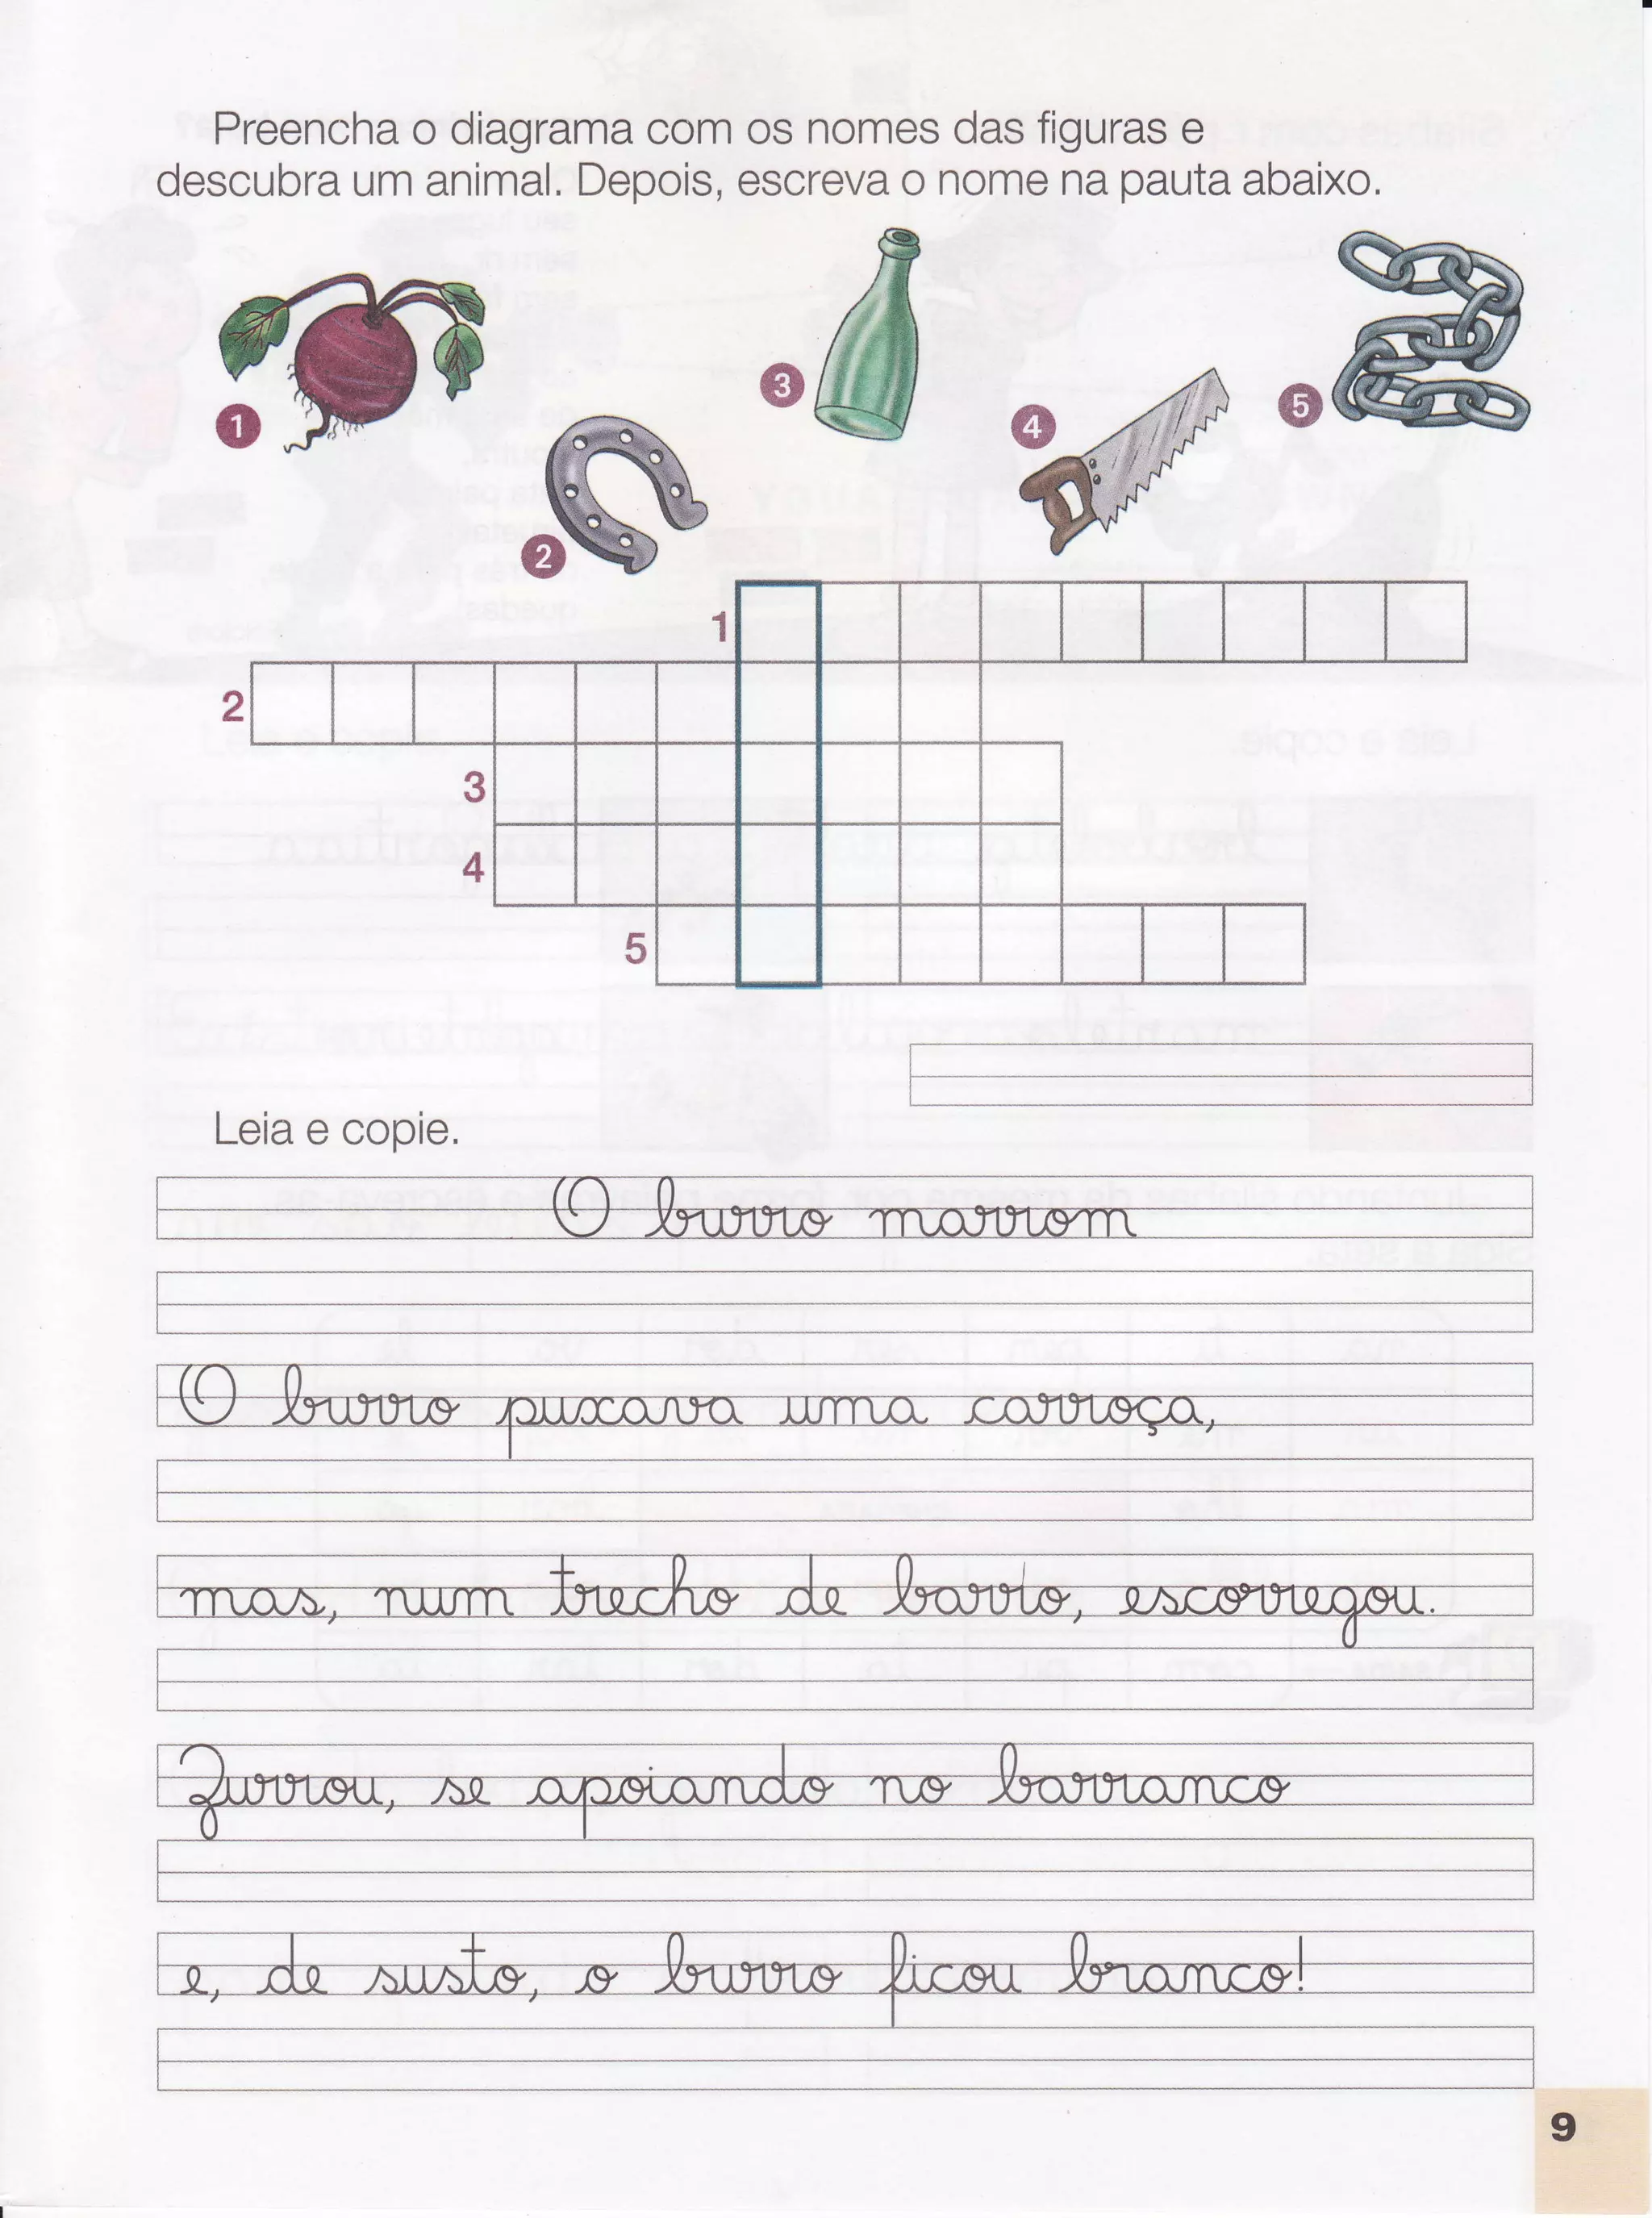 Preencha o diagrama com os nomes das figuras e
descubra um animal. Depois, escreva o nome na pauta abaixo.
1
2
3
4
5
1
2
3
4
5
Leia e copie.
O burro marrom
O burro puxava uma carroça,
mas, num trecho de barro, escorregou.
Zurrou, se apoiando no barranco
e, de susto, o burro ficou branco!
9